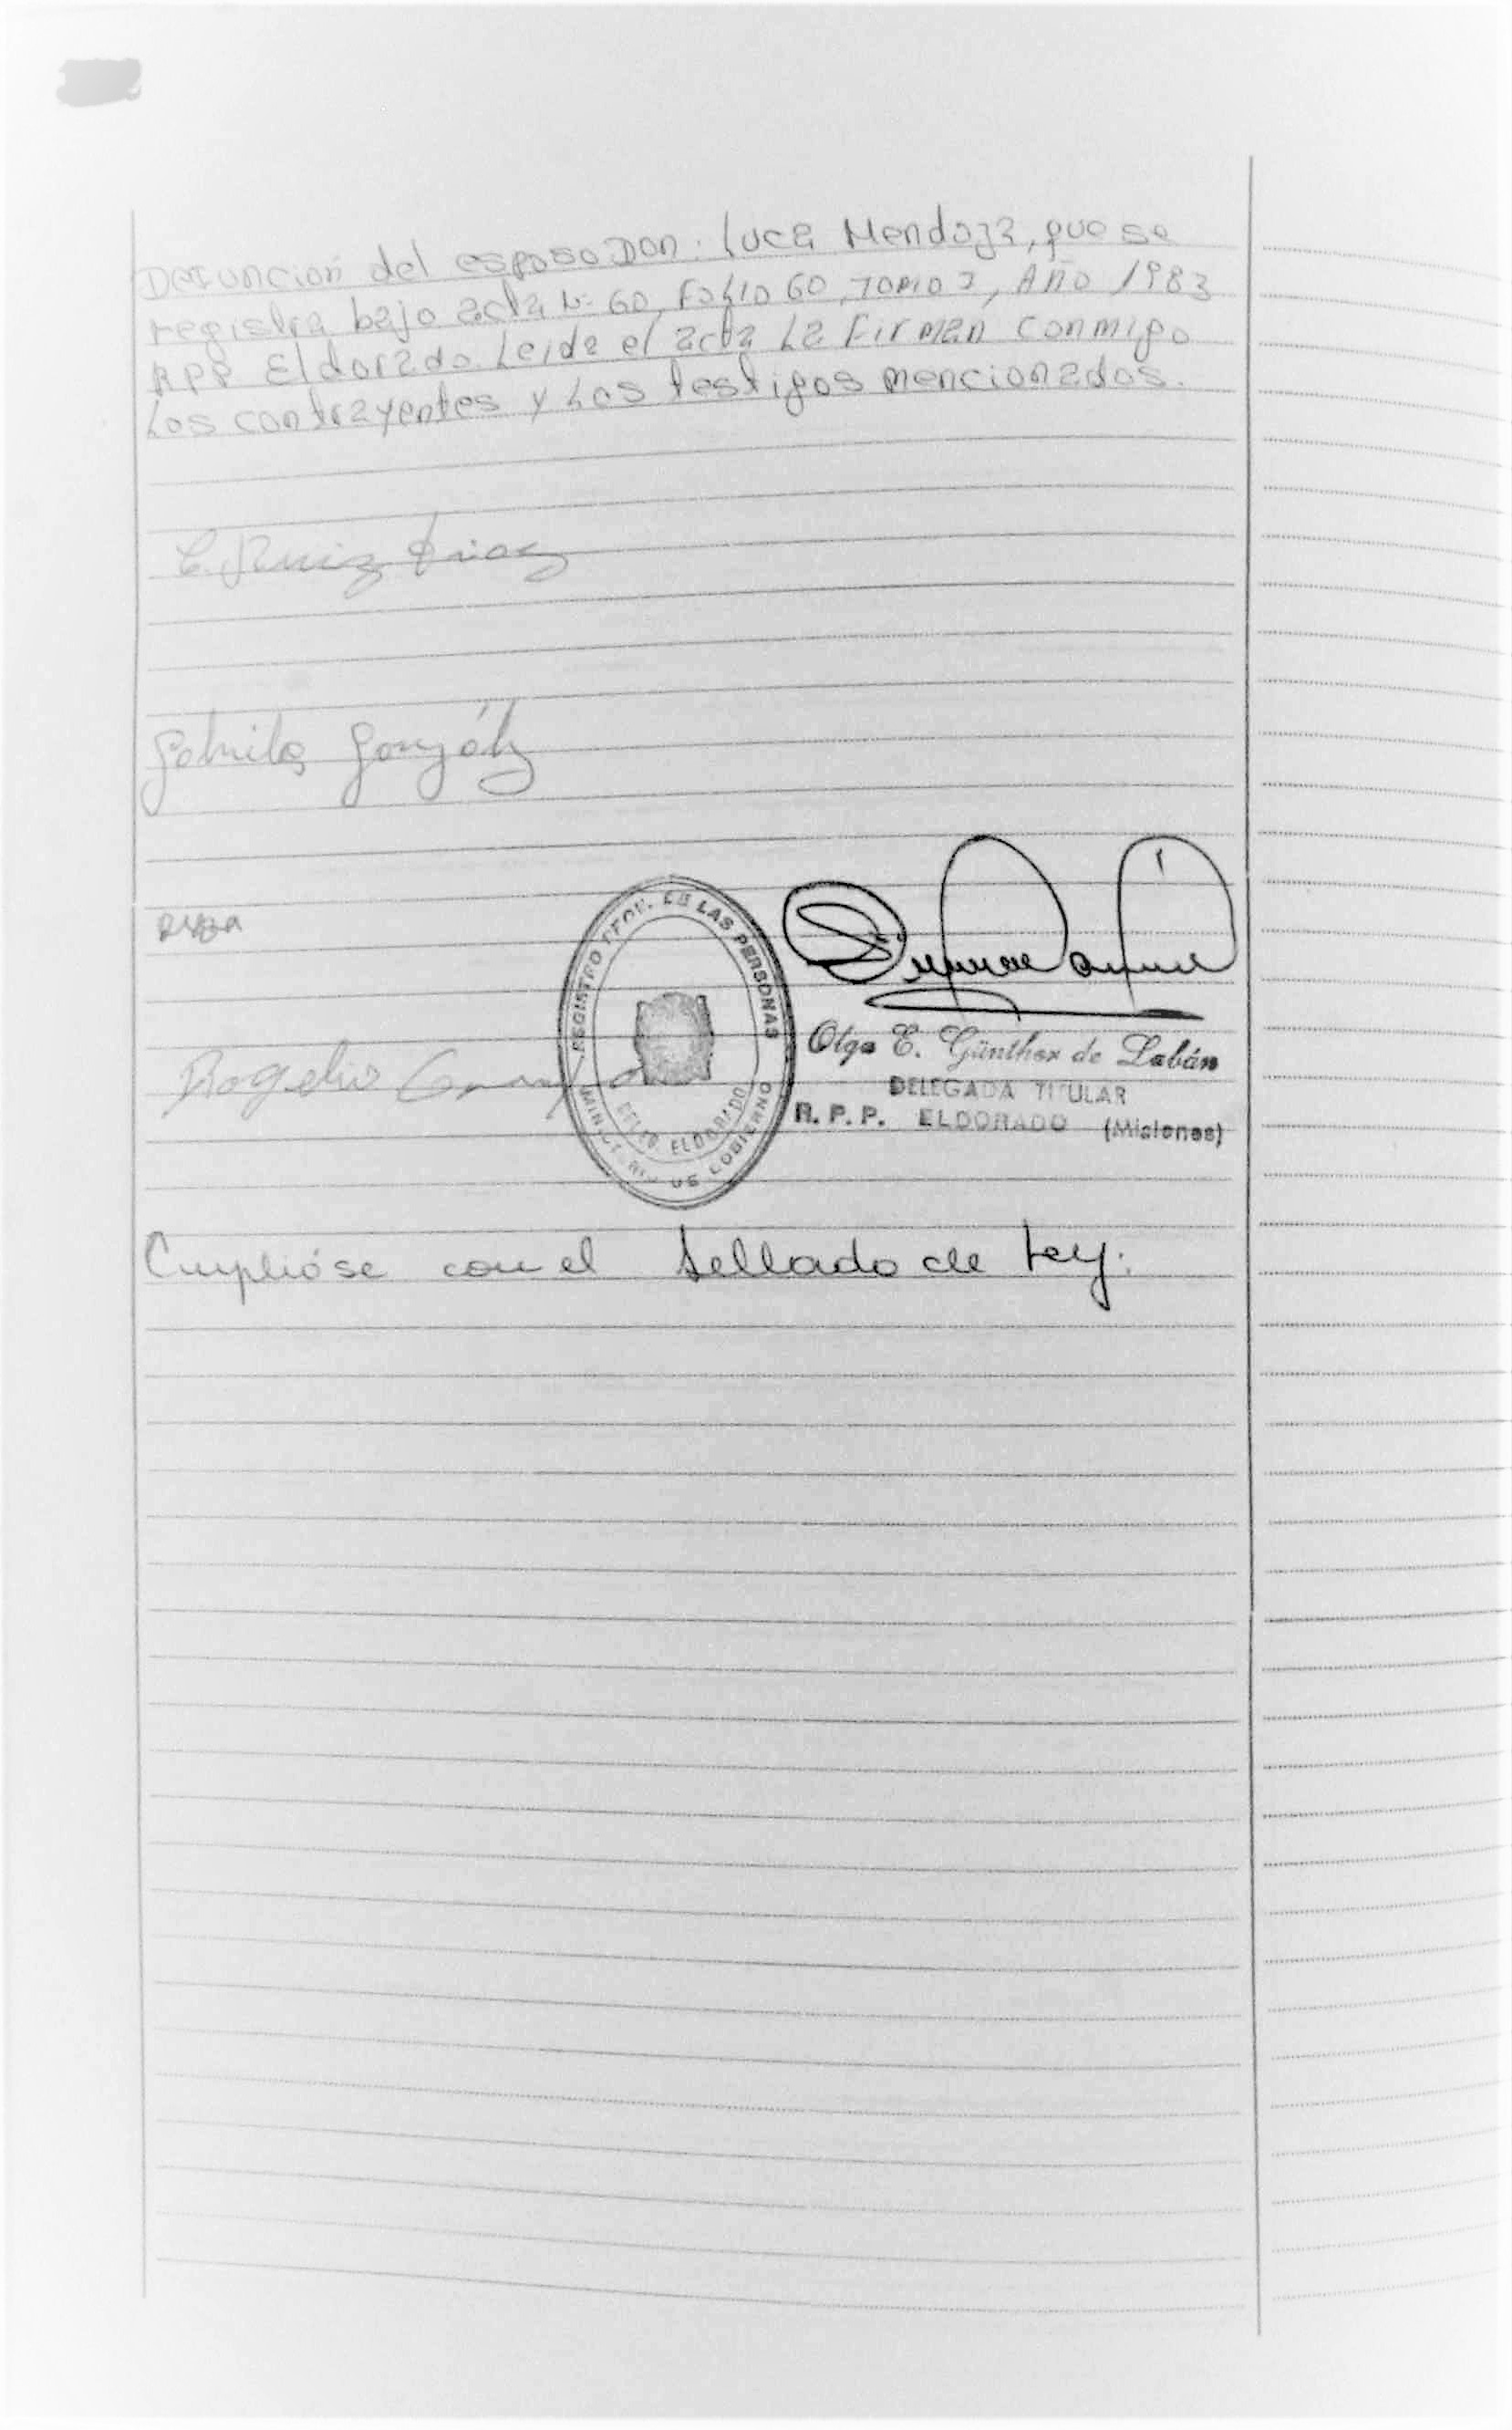 Defuncion del esposo Don: Luca Mendoza, que se
registra bajo acta Nº 60, Folio 60, Tomo 2, Año 1983
RPP Eldorado. Leida el acta La Firman conmigo
Los contrayentes y Los testigos mencionados.
C. Ruiz Diaz
González
REGISTRO PROV. DE LAS PERSONAS
Rogelio
DELEGADA TITULAR
Olga E. Günther de Labán
R. P. P. ELDORADO (Misiones)
ELDORADO
DE GOBIERNO
Cumplióse con el Sellado de Ley.